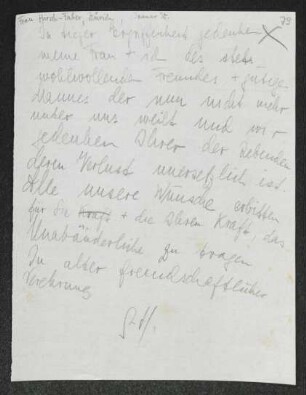 Frau Hirsch-Faber, Zürich,
79
In tiefer Ergriffenheit gedenken
meine Frau + ich des stets
wohlwollenden Freundes + gütigen
Mannes der nun nicht mehr
unter uns weilt und wir
gedenken Ihrer der Liebenden
deren Verlust unersetzlich ist.
Alle unsere Wünsche erbitten
für Sie Kraft + die Ihren Kraft, das
Unabänderliche zu tragen
In alter freundschaftlicher
Verehrung